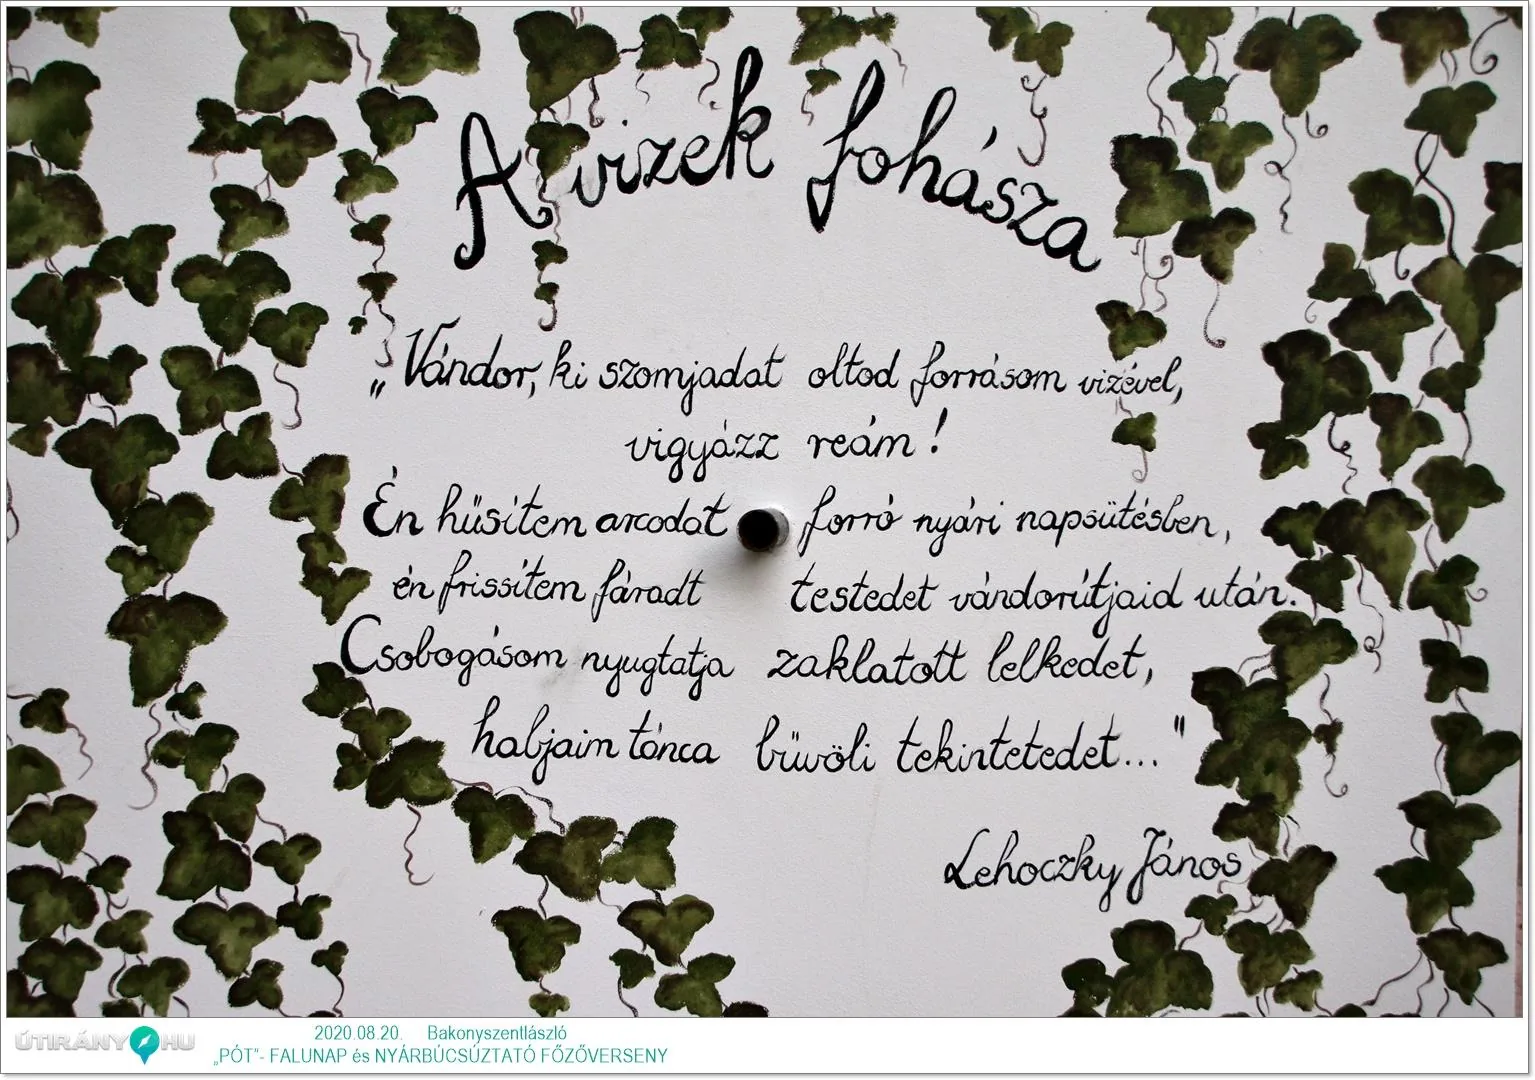 A vizek fohásza
„Vándor, ki szomjadat oltod forrásom vizével,
vigyázz reám!
Én hűsítem arcodat forró nyári napsütésben,
én frissítem fáradt testedet vándorútjaid után.
Csobogásom nyugtatja zaklatott lelkedet,
habjaim tánca bűvöli tekintetedet..."
Lehoczky János
ÚTIRÁNY HU
2020.08.20. Bakonyszentlászló
„PÓT"- FALUNAP és NYÁRBÚCSÚZTATÓ FŐZŐVERSENY